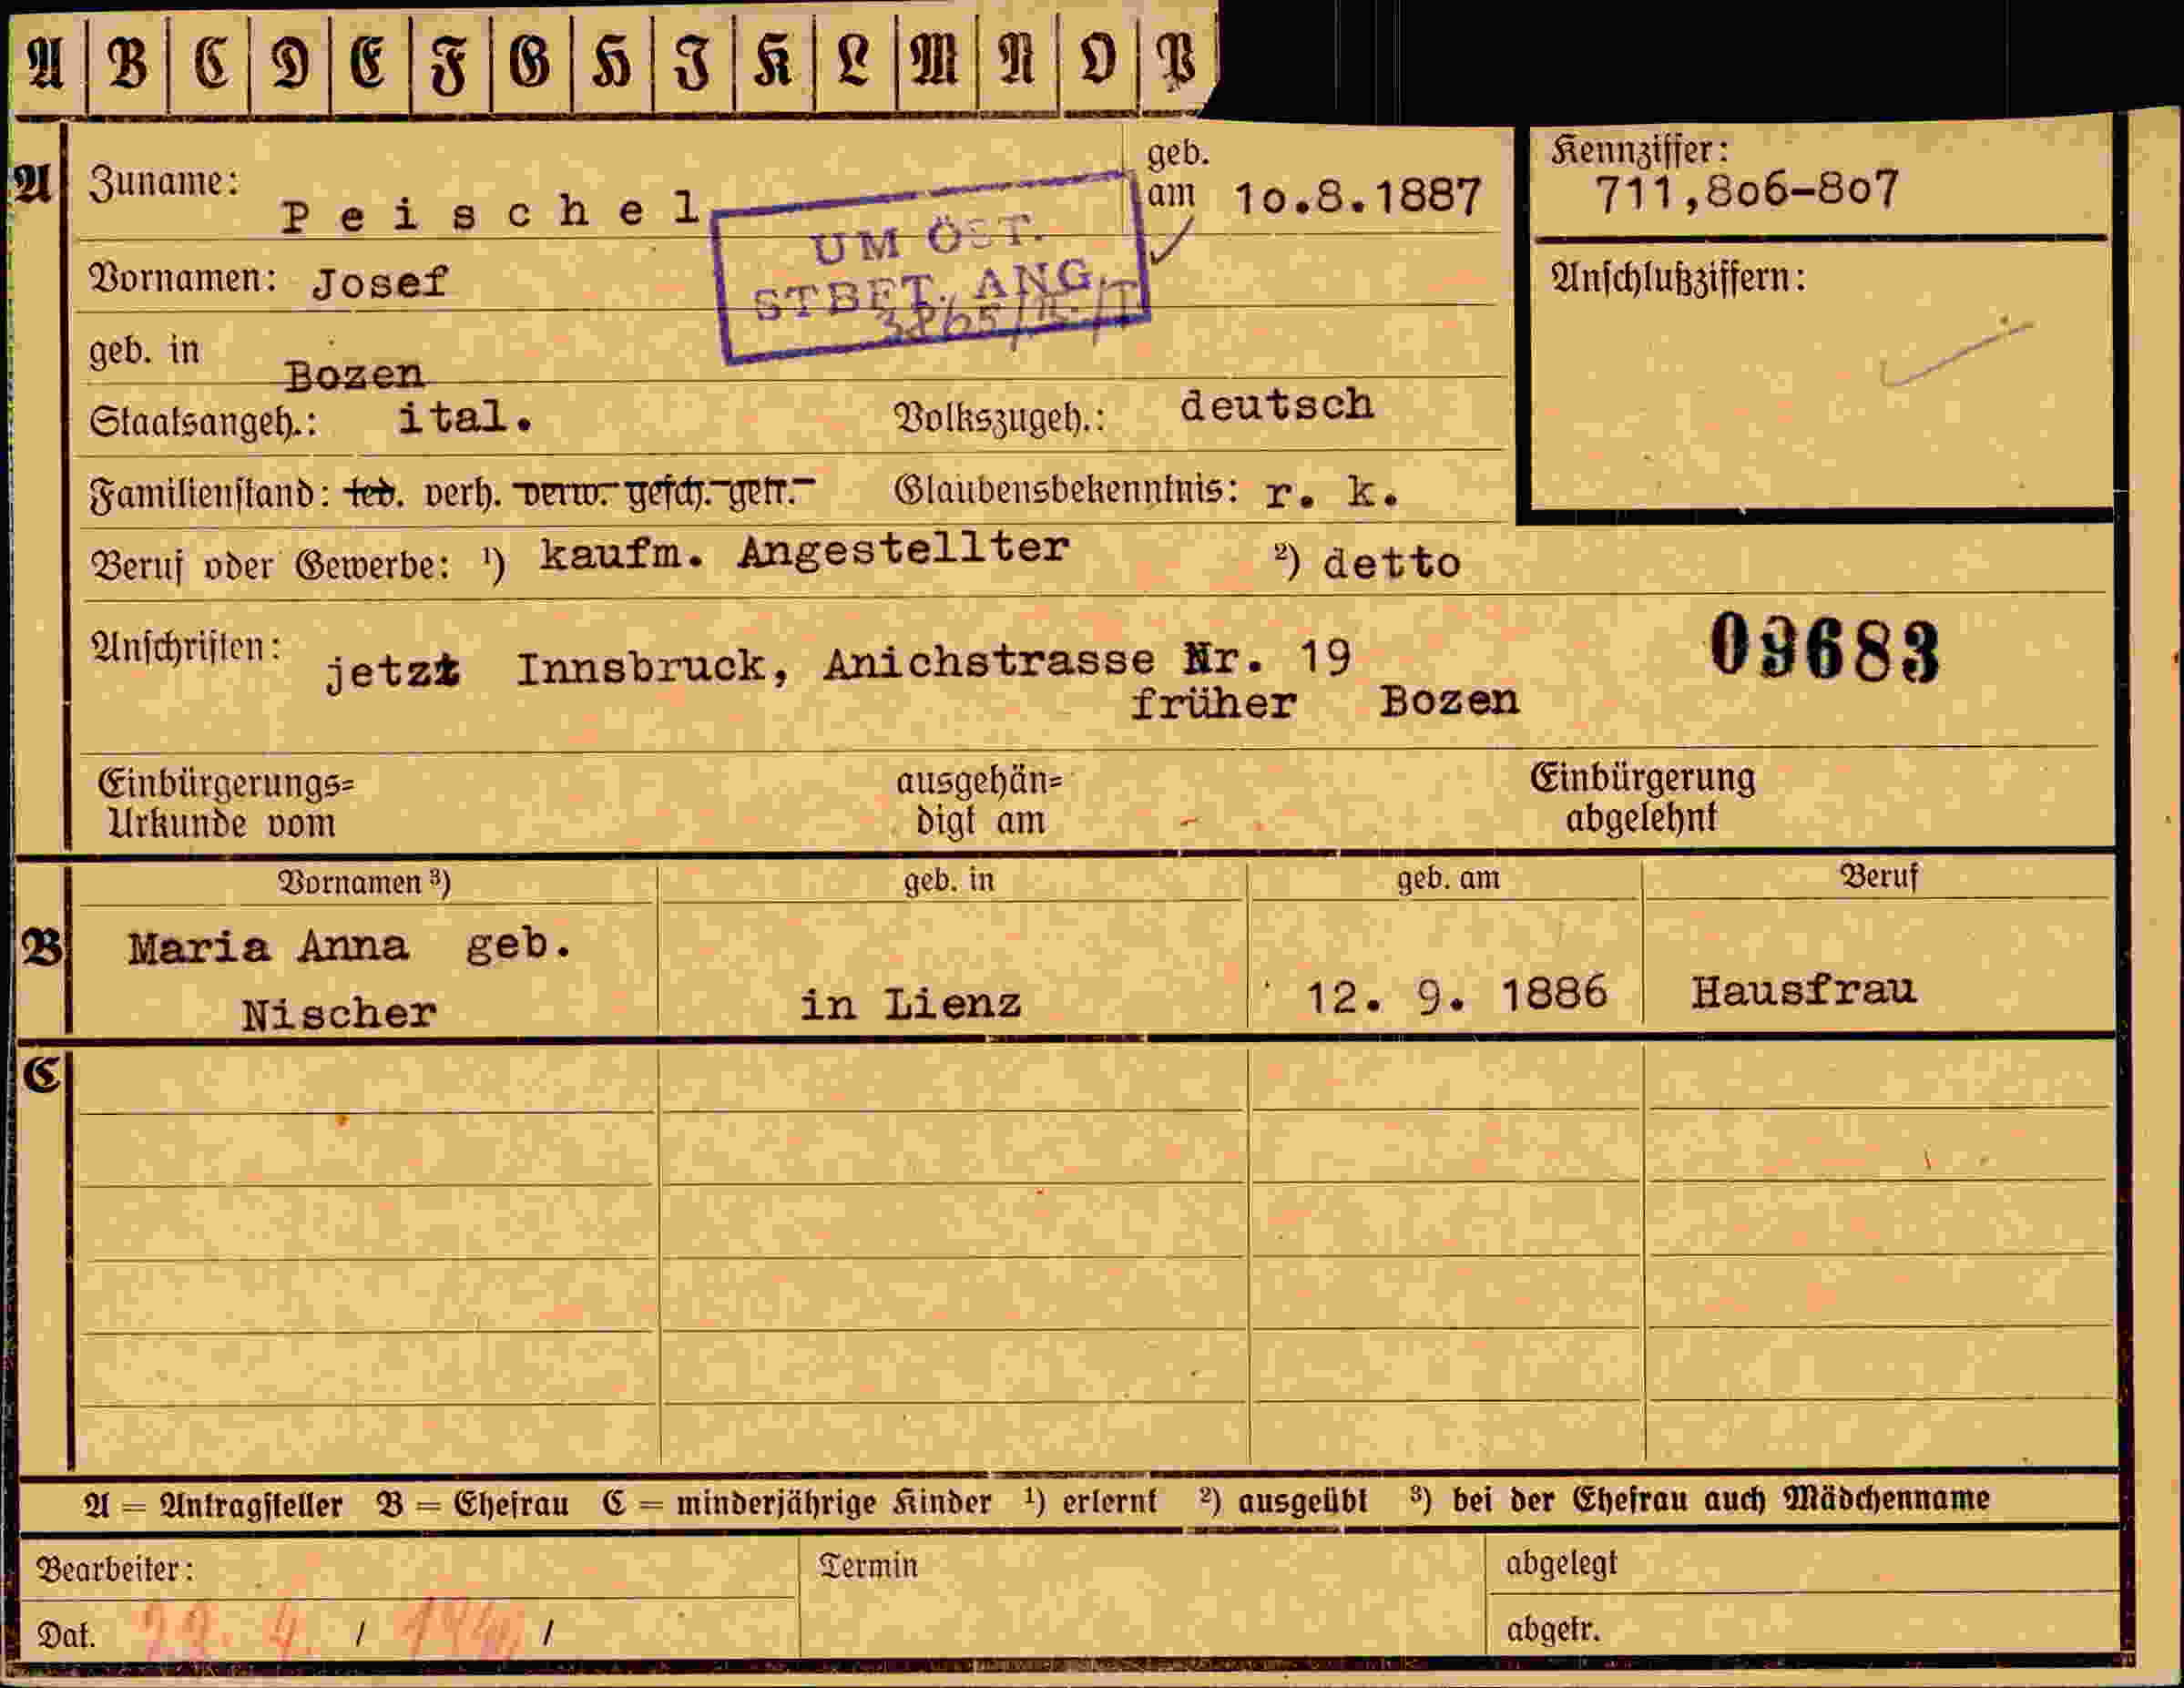 A B C D E F G H J K L M N O P
A
Zuname: Peischel
geb. am 10.8.1887
Kennziffer: 711,806-807
UM ÖST.
STBET. ANG.
Vornamen: Josef
Anschlußziffern:
geb. in Bozen
Staatsangeh.: ital. Volkszugeh.: deutsch
Familienstand: led. verh. verw. gesch. getr. Glaubensbekenntnis: r. k.
Beruf oder Gewerbe: ¹) kaufm. Angestellter ²) detto
Anschriften: jetzt Innsbruck, Anichstrasse Nr. 19
früher Bozen
09683
Einbürgerungs=
Urkunde vom
ausgehän=
digt am
Einbürgerung
abgelehnt
Vornamen ³) geb. in geb. am Beruf
B
Maria Anna geb.
Nischer in Lienz 12. 9. 1886 Hausfrau
C
A = Antragsteller B = Ehefrau C = minderjährige Kinder ¹) erlernt ²) ausgeübt ³) bei der Ehefrau auch Mädchenname
Bearbeiter: Termin abgelegt
Dat. 4. / 1940 /
abgetr.